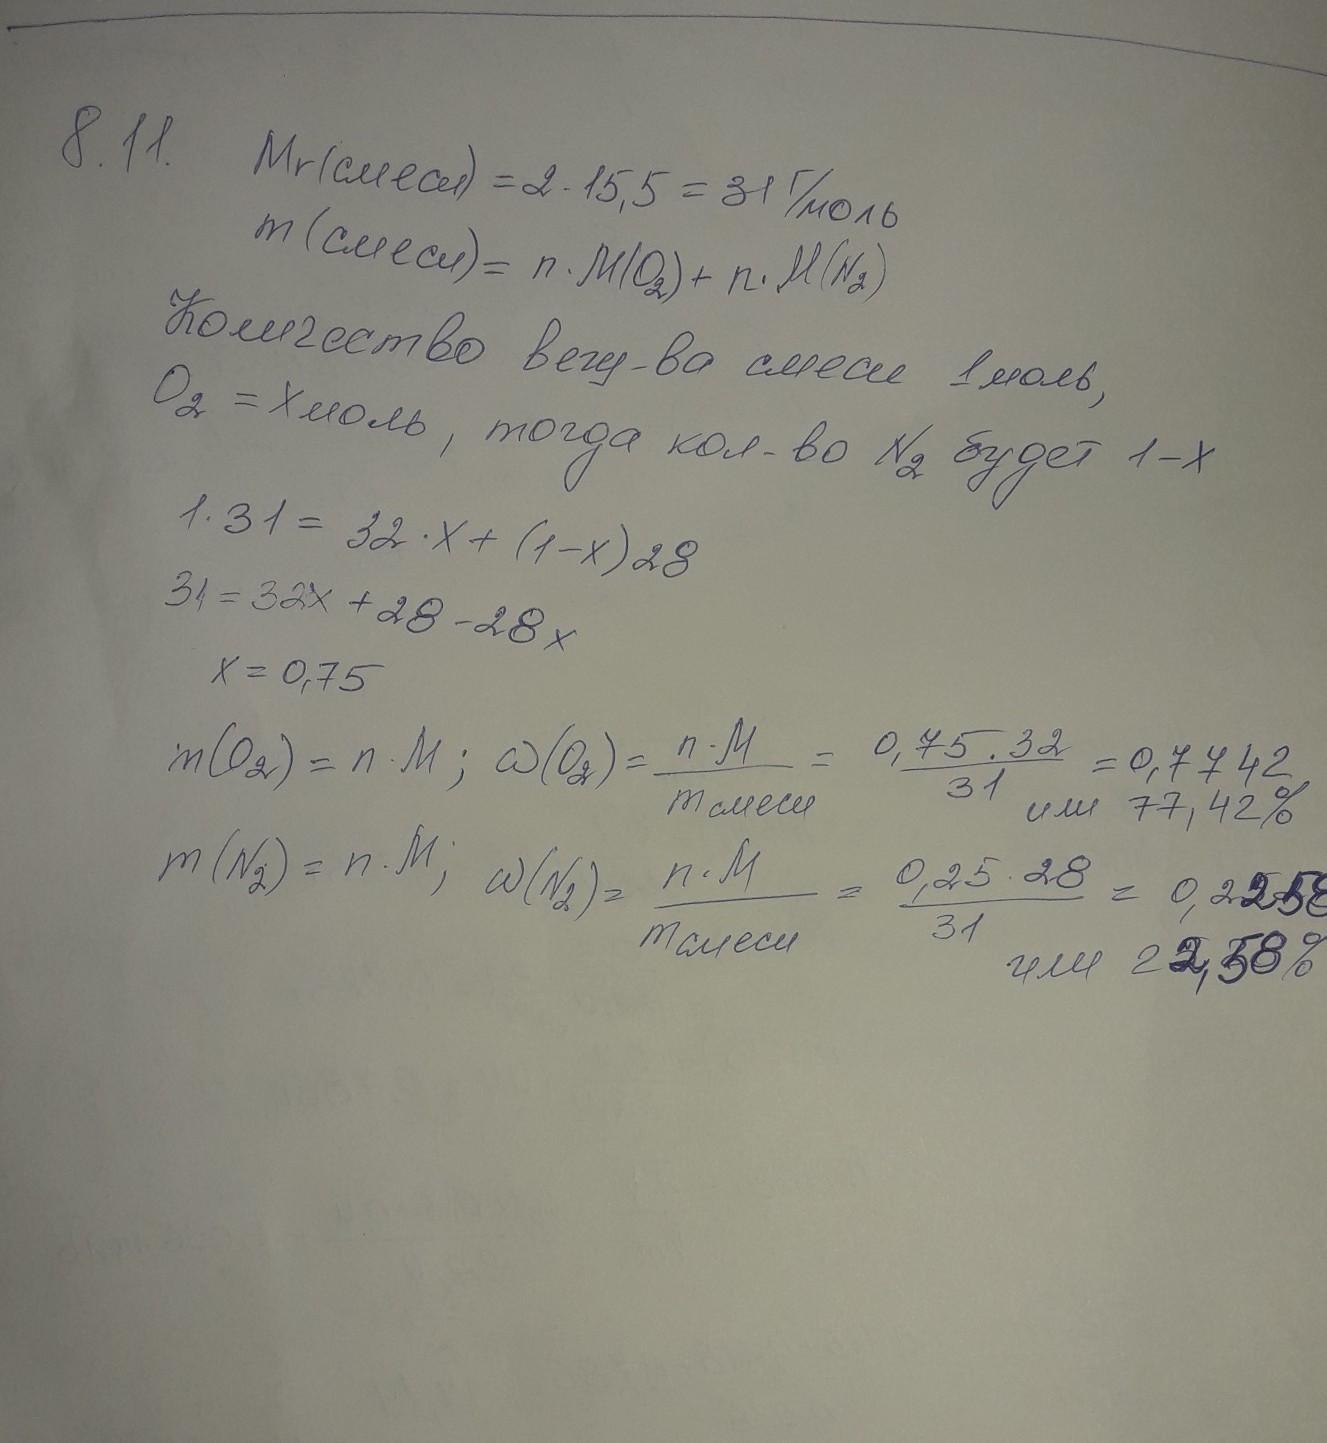 8.11. Mr(смеси) = 2·15,5 = 31 г/моль
m(смеси) = n·M(O₂) + n·M(N₂)
Количество вещ-ва смеси 1 моль,
O₂ = x моль, тогда кол-во N₂ будет 1-x
1·31 = 32·x + (1-x)28
31 = 32x + 28 - 28x
x = 0,75
m(O₂) = n·M; ω(O₂) = n·M / m смеси = 0,75·32 / 31 = 0,7742
или 77,42%
m(N₂) = n·M; ω(N₂) = n·M / m смеси = 0,25·28 / 31 = 0,2258
или 22,58%